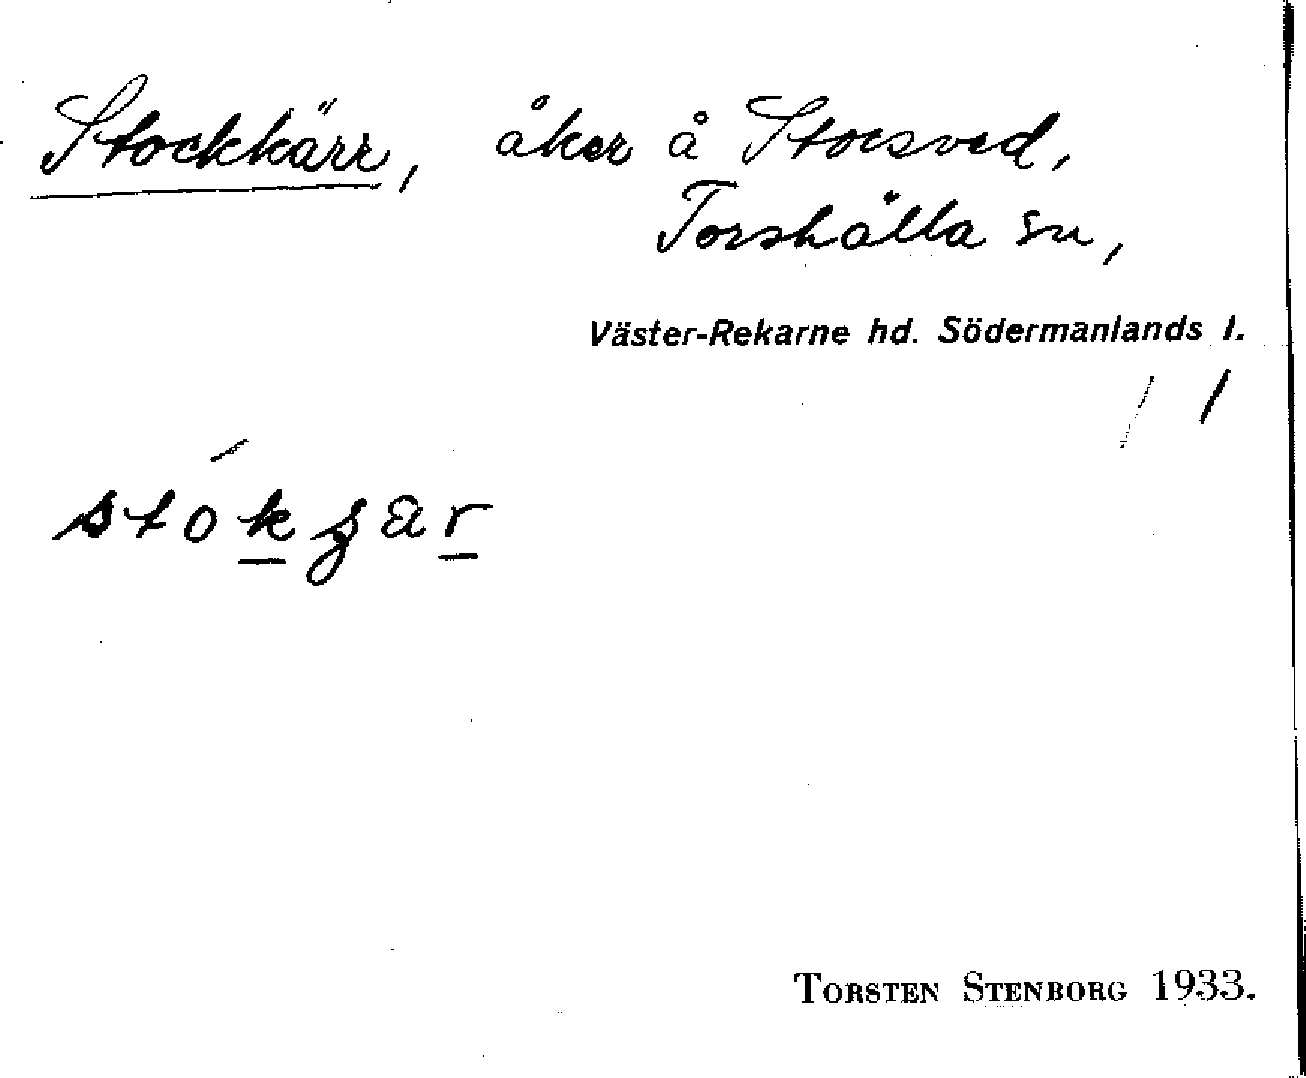 Stockkärr, åker å Storsved,
Torshälla sn,
Väster-Rekarne hd. Södermanlands l.
TORSTEN STENBORG 1933.